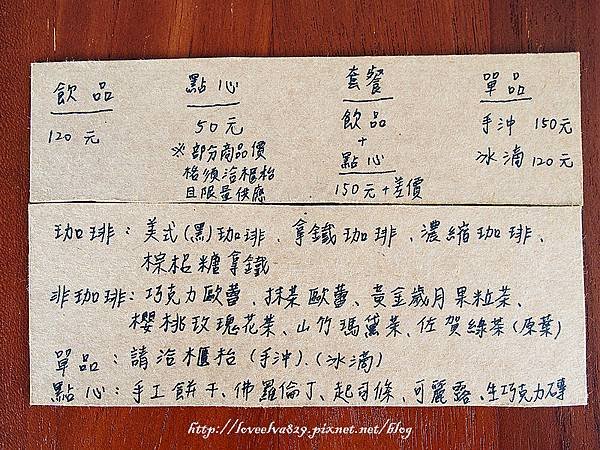 飲品
120元
點心
50元
※部分商品價
格須洽櫃枱
且限量供應
套餐
飲品
+
點心
150元+差價
單品
手沖 150元
冰滴 120元
珈琲：美式(黑)珈琲、拿鐵珈琲、濃縮珈琲、
棕梠糖拿鐵
非珈琲：巧克力歐蕾、抹茶歐蕾、黃金歲月果粒茶、
櫻桃玫瑰花茶、山竹瑪黛茶、佐賀綠茶(原葉)
單品：請洽櫃枱(手沖)、(冰滴)
點心：手工餅干、佛羅倫丁、起司條、可麗露、生巧克力磚
http://loveelva829.pixnet.net/blog